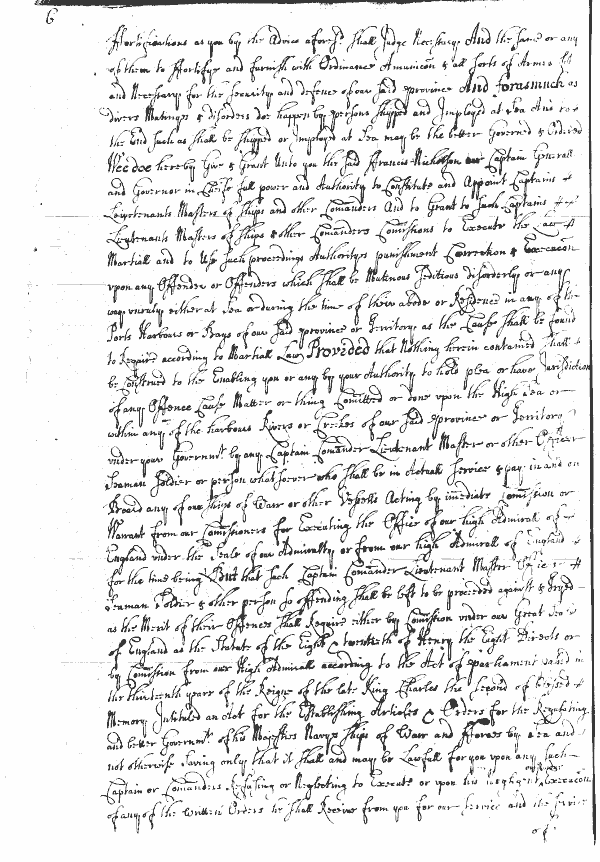 6
Ffortifications as you by the Advice afores.d Shall Judge Necessary And the Same or any
of them to Ffortifye and furnish with Ordinance Amunicon & all Sorts of Armes fit
and Necessary for the Security and defence of our Said province And forasmuch as
divers Mutinys & disorders doe happen by persons Shipped and Imployed at Sea And to
the End Such as Shall be Shipped or Imployed at Sea may be the better Governed & Ordered
Wee doe hereby Give & Grant Unto you the Said Ffrancis Nicholson our Captain Generall
and Governor in Cheife full power and Authority to Constitute and Appoint Captains
Leiutenants Masters of Ships and other Comanders And to Grant to Such Captains
Leiutenants Masters of Ships & other Comanders Comissions to Execute the Law
Martiall and to Use Such proceedings Authoritys punishment Correction & Execucon
upon any Offender or Offenders which Shall be Mutinous Seditious disorderly or any
way unruly either at Sea or during the time of their abode or Residence in any of the
Ports Harbours or Bays of our Said province or Territory as the Cause Shall be found
to Require according to Martiall Law Provided that Nothing herein contained Shall
be Construed to the Enabling you or any by your Authority to hold plea or have Jurisdiction
of any Offence Cause Matter or thing Comitted or done upon the High Sea or
within any of the harbours Rivers or Creekes of our Said province or Territory
under your Governm.t by any Captain Comander Lieutenant Master or other Officer
Seaman Soldier or person whatsoever who Shall be in Actuall Service & pay in and on
Board any of our Ships of Warr or other Vessells Acting by imediate Comission or
Warrant from our Comissioners for Executing the Office of our high Admirall of
England under the Seale of our Admiralty or from our high Admirall of England
for the time being But that Such Captain Comander Lieutenant Master Officer
Seaman Soldier & other person So offending Shall be left to be proceeded against & tryed
as the Merit of their Offences Shall Require either by Comission under our Great Seale
of England as the Statute of the Eight & twentieth of Henry the Eight Directs or
by Comission from our High Admirall according to the Act of parliament passed in
the thirteenth yeare of the Reigne of the late King Charles the Second of blessed
Memory Intituled an Act for the Establishing Articles & Orders for the Regulating
and better Governm.t of his Majesties Navys Ships of Warr and Fforces by Sea and
not otherwise Saving only that it Shall and may be Lawfull for you upon any Such
Captain or Comanders Refusing or Neglecting to Execute or upon his Negligent Execucon
of any of the written Orders he Shall Receive from you for our Service and the Service
of